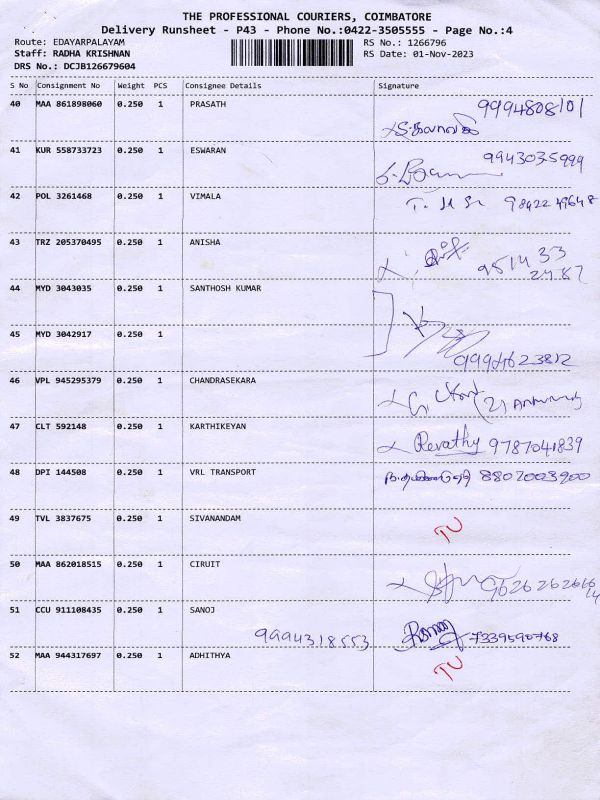 THE PROFESSIONAL COURIERS, COIMBATORE
Delivery Runsheet - P43 - Phone No.:0422-3505555 - Page No.:4
Route: EDAYARPALAYAM RS No.: 1266796
Staff: RADHA KRISHNAN RS Date: 01-Nov-2023
DRS No.: DCJB126679604
S No Consignment No Weight PCS Consignee Details Signature
40 MAA 861898060 0.250 1 PRASATH 9994808101
41 KUR 558733723 0.250 1 ESWARAN 9943035999
42 POL 3261468 0.250 1 VIMALA 9842249648
43 TRZ 205370495 0.250 1 ANISHA 951433
2487
44 MYD 3043035 0.250 1 SANTHOSH KUMAR
45 MYD 3042917 0.250 1
9994623812
46 VPL 945295379 0.250 1 CHANDRASEKARA
47 CLT 592148 0.250 1 KARTHIKEYAN Revathy 9787041839
48 DPI 144508 0.250 1 VRL TRANSPORT 8807003900
49 TVL 3837675 0.250 1 SIVANANDAM TU
50 MAA 862018515 0.250 1 CIRUIT
51 CCU 911108435 0.250 1 SANOJ
9994318553 7339590768
52 MAA 944317697 0.250 1 ADHITHYA TU